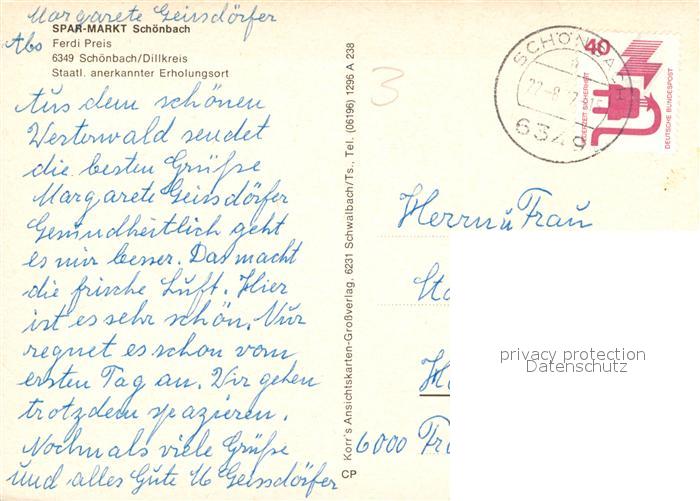 Margarete Geissdörfer
SPAR-MARKT Schönbach
Abs Ferdi Preis
6349 Schönbach/Dillkreis
Staatl. anerkannter Erholungsort
Aus dem schönen
Westerwald sendet
die besten Grüße
Margarete Geissdörfer
Gesundheitlich geht
es mir besser. Das macht
die frische Luft. Hier
ist es sehr schön. Nur
regnet es schon vom
ersten Tag an. Wir gehen
trotzdem spazieren.
Nochmals viele Grüße
und alles Gute M Geissdörfer
Korr's Ansichtskarten-Großverlag, 6231 Schwalbach/Ts., Tel. (06196) 1296 A 238
CP
3
SCHÖNBACH
6349
40
JEDERZEIT SICHERHEIT
DEUTSCHE BUNDESPOST
Herrn u Frau
6000
privacy protection
Datenschutz